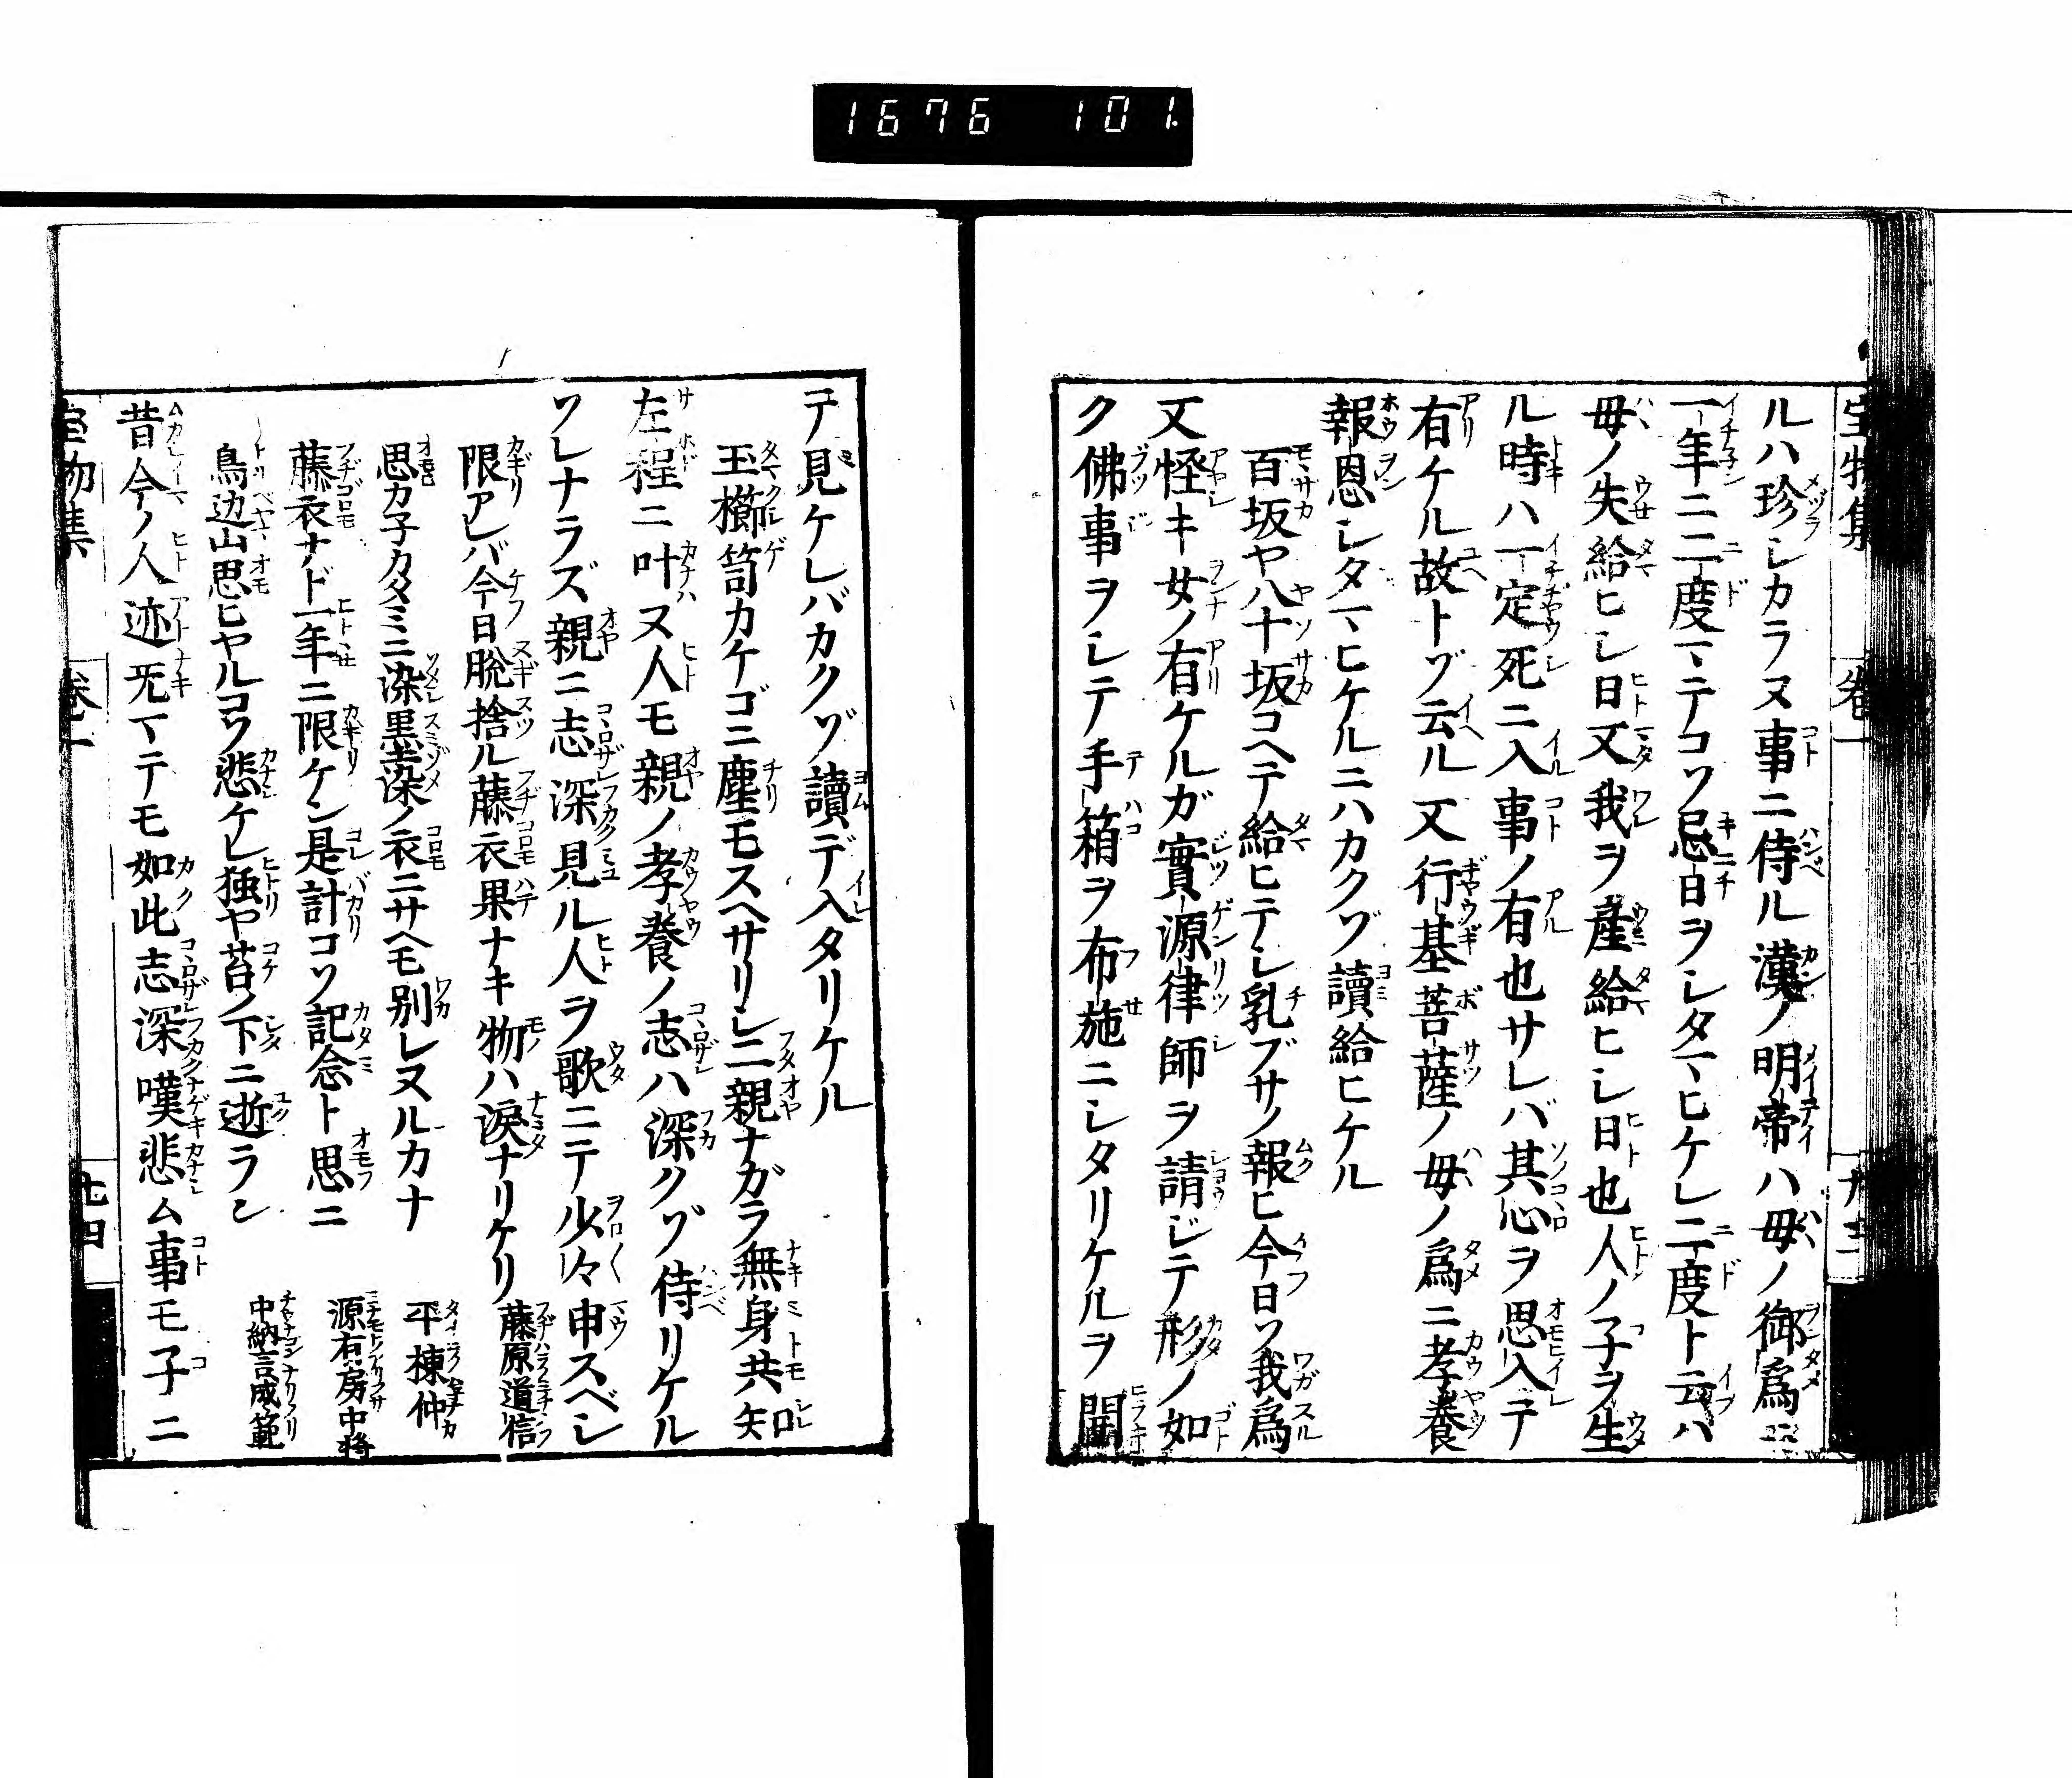 1676 101.
ルハ珍シカラヌ事ニ侍ル漢ノ明帝ハ母ノ御爲ニ
一年ニ二度マデコソ忌日ヲシタマヒケレ二度ト云ハ
母ノ失給ヒシ日又我ヲ產給ヒシ日也人ノ子ヲ生
ル時ハ一定死ニ入事ノ有也サレバ其心ヲ思入テ
有ケル故トゾ云ル又行基菩薩ノ母ノ爲ニ孝養
報恩シタマヒケルニハカクゾ讀給ヒケル
百坂ヤ八十坂コヘテ給ヒテシ乳ブサノ報ヒ今日ソ我爲
又怪キ女ノ有ケルガ實源律師ヲ請ジテ形ノ如
ク佛事ヲシテ手箱ヲ布施ニシタリケルヲ開
テ見ケレバカクゾ讀デ入タリケル
玉櫛笥カケゴニ塵モスヘサリシ二親ナガラ無身共知
左程ニ叶ヌ人モ親ノ孝養ノ志ハ深クゾ侍リケル
ソレナラズ親ニ志深見ル人ヲ歌ニテ少々申スベシ
限アレバ今日脫捨ル藤衣果ナキ物ハ淚ナリケリ 藤原道信
思カ子カタミニ染黒染ノ衣ニサヘモ別レヌルカナ 平棟仲
藤衣ナド一年ニ限ケン是計コソ記念ト思ニ 源右房中将
鳥边山思ヒヤルコソ悲ケレ独ヤ苔ノ下ニ逝ラン 中納言成範
昔今ノ人迹旡マテモ如此志深嘆悲ム事モ子ニ
宝物集 巻一